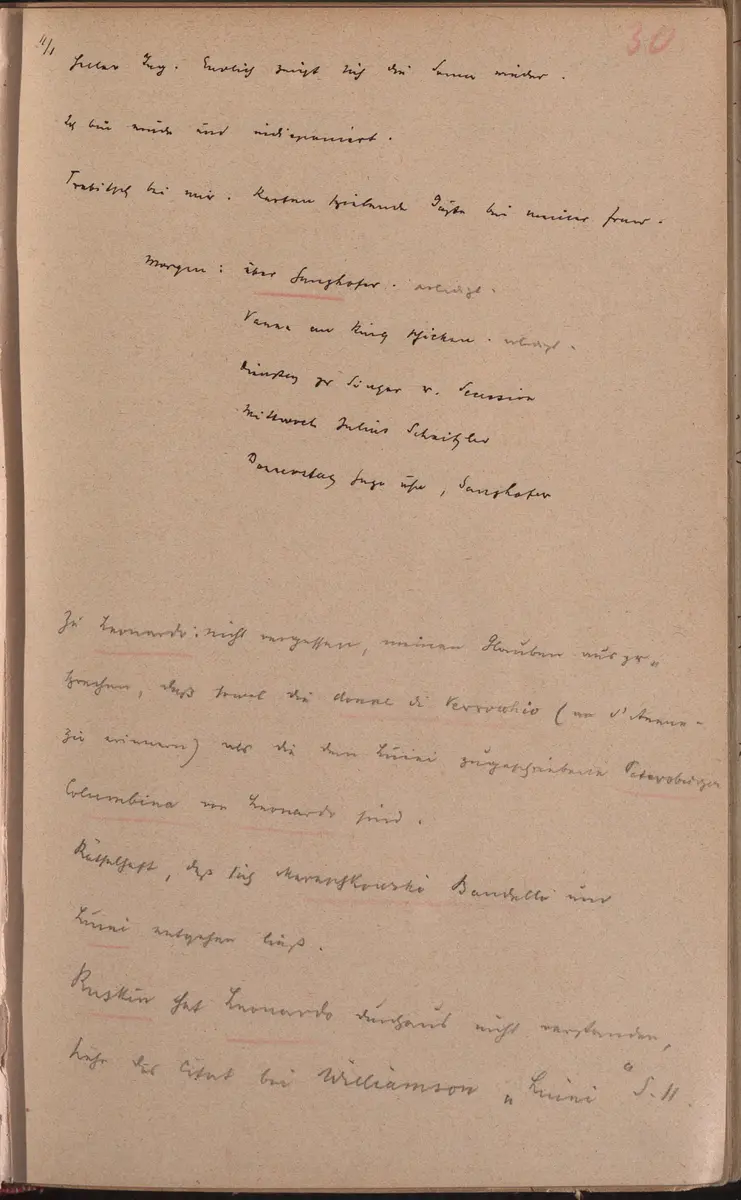 4/1
30
Heller Tag. Endlich zeigt sich die Sonne wieder.
Ich bin müde und indisponiert.
Trebitsch bei mir. Karten spielende Gäste bei meiner Frau.
Morgen: über Ganghofer. erledigt.
Vanna an Ring schicken. erledigt.
Dienstag zu Singer v. Secession
Mittwoch Julius Schnitzler
Donnerstag Hugo , Ganghofer
Zu Leonardo: nicht vergessen, meinen Glauben auszu-
sprechen, daß sowol die donna di Verrocchio (an d'Annun-
zio erinnern) als die dem Luini zugeschriebene Petersburger
Columbina von Leonardo sind.
Rätselhaft, daß sich Mereschkowski Bandello und
Luini entgehen ließ.
Ruskin hat Leonardo durchaus nicht verstanden,
siehe das Citat bei Williamson „Luini“ S. 11.